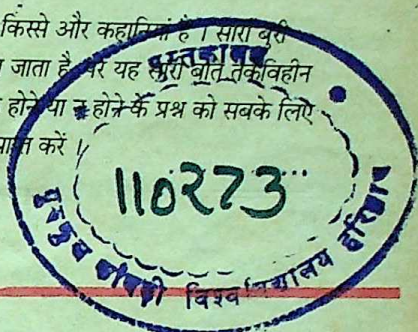 किस्से और कहानियां हैं । सारा बुरी
जाता है, पर यह सारी बातें तर्कविहीन
होने या न होने के प्रश्न को सबके लिए
करें ।
पुस्तकालय
110273
गुरुकुल कांगड़ी विश्वविद्यालय हरिद्वार